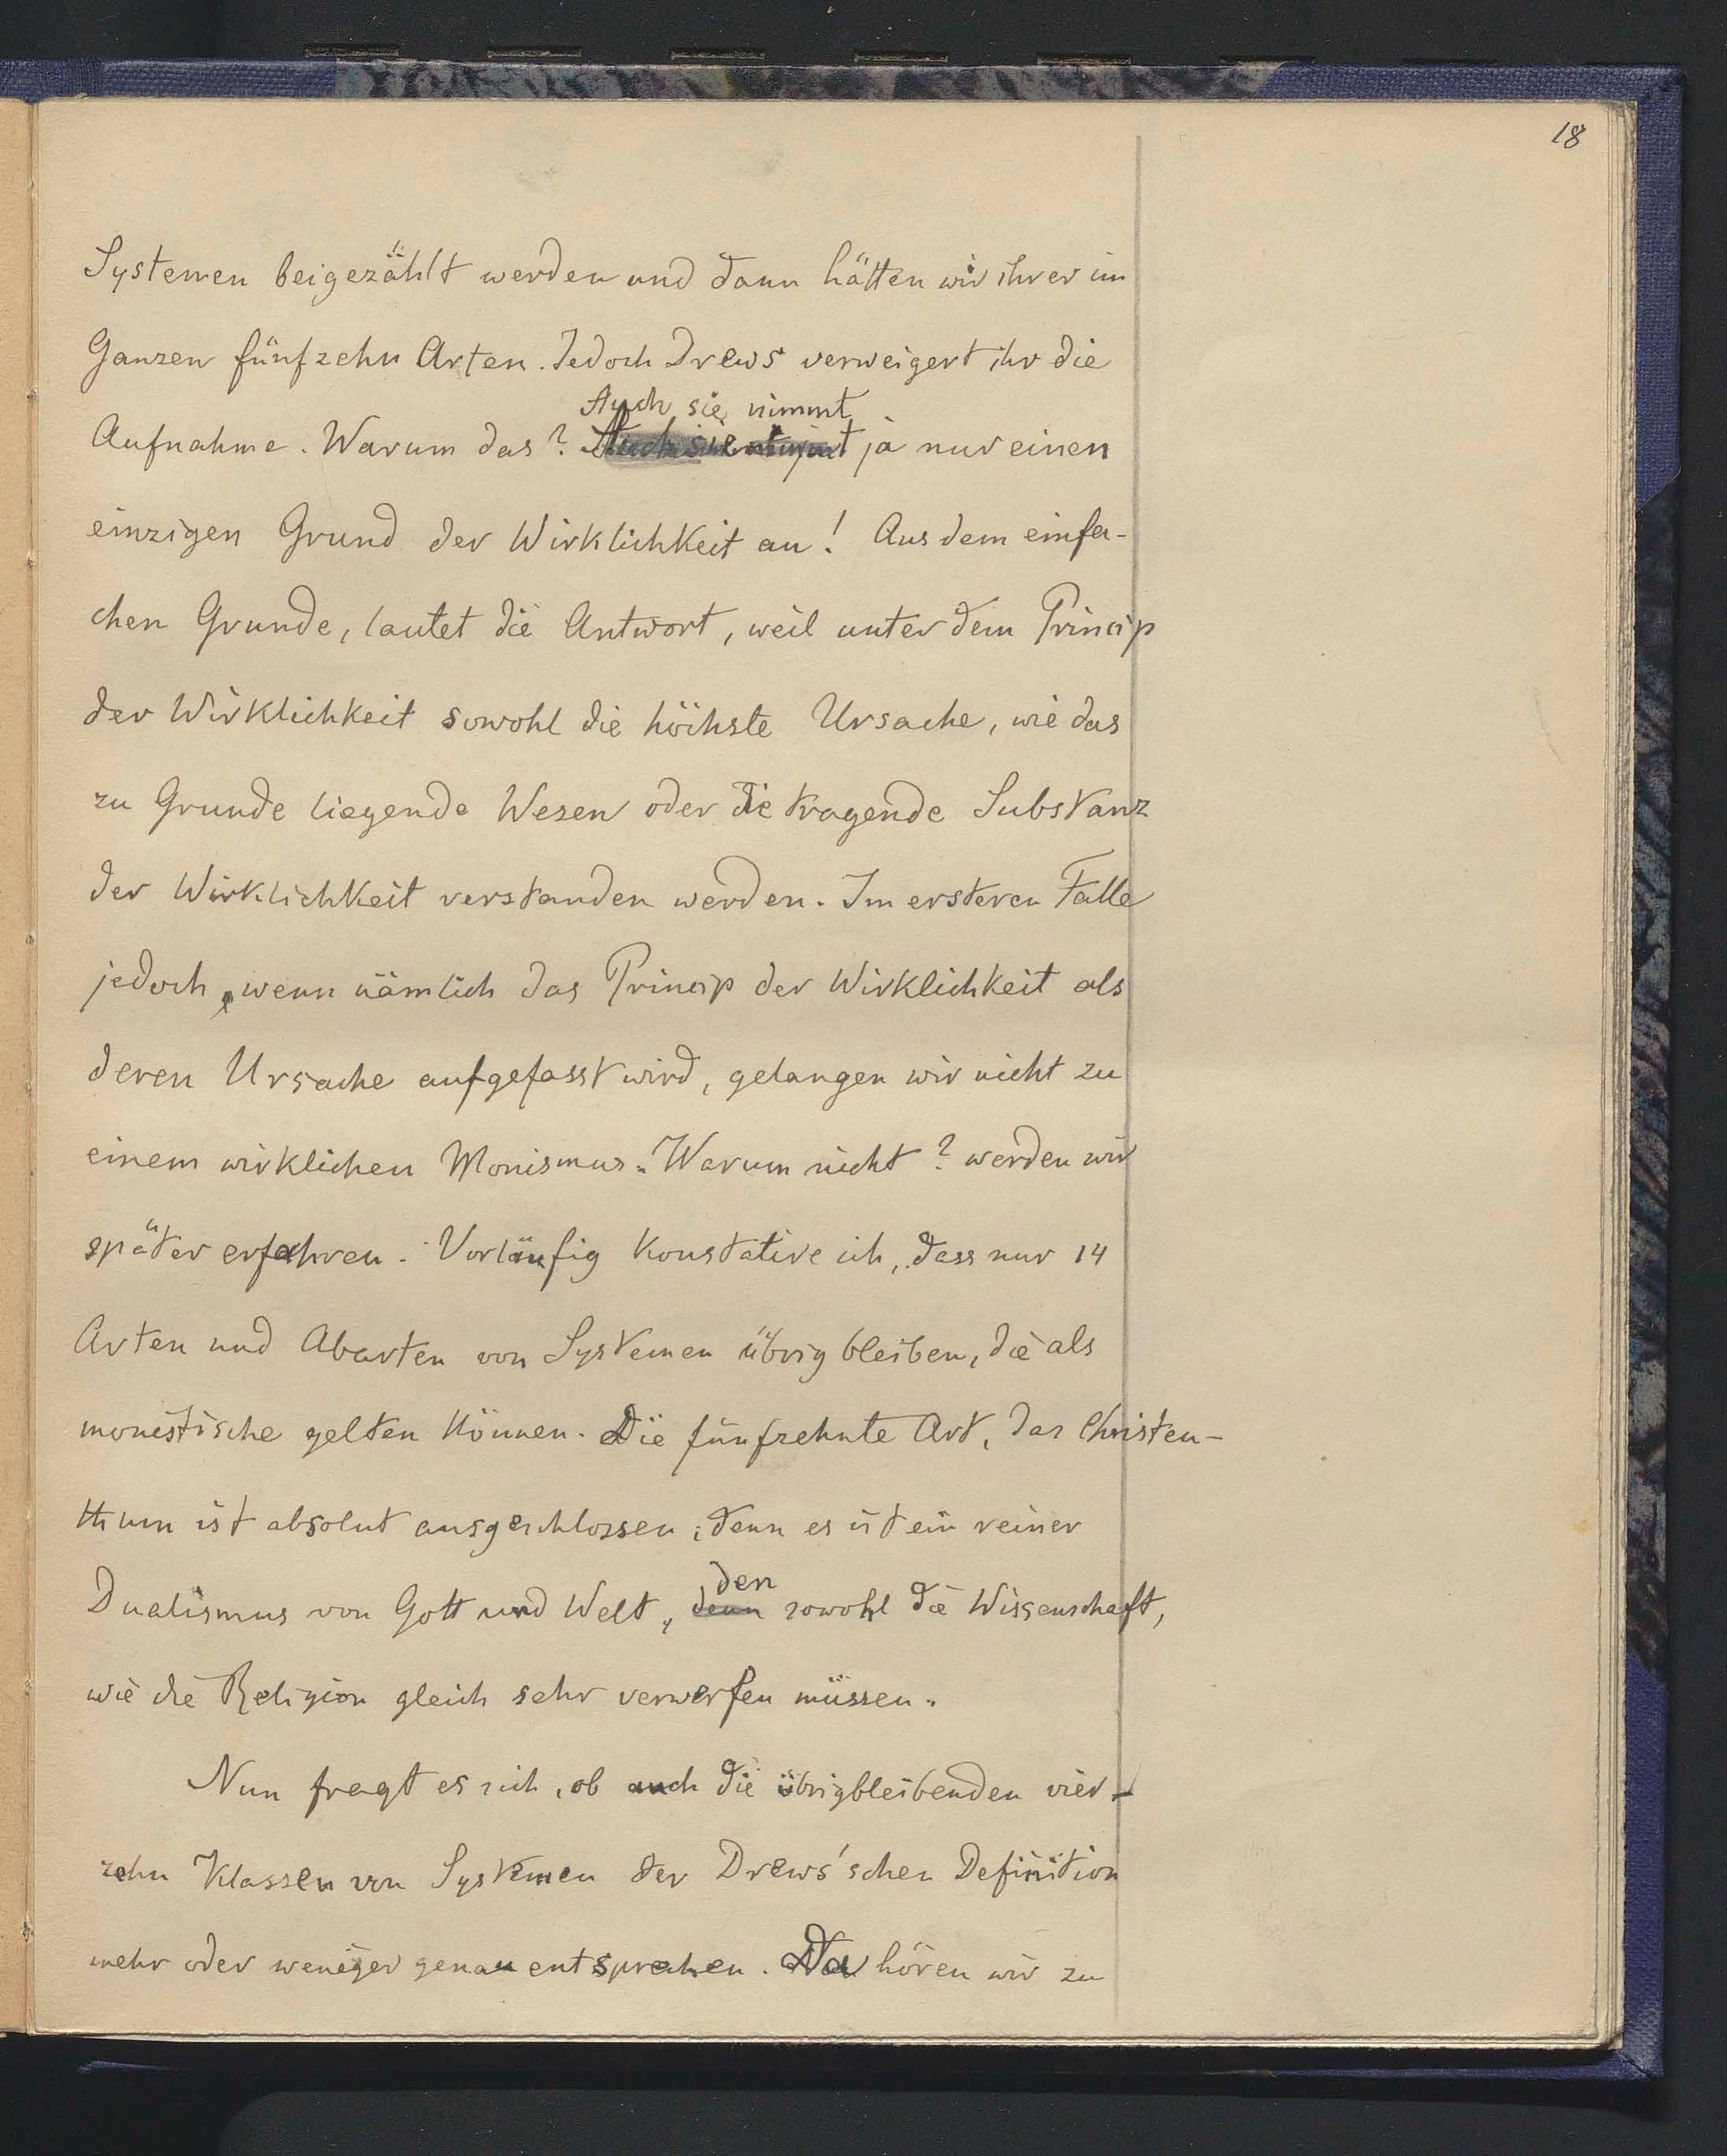 18
Systemen beigezählt werden und dann hätten wir ihrer im
Ganzen fünfzehn Arten. Jedoch Drews verweigert ihr die
Auch sie nimmt
Aufnahme. Warum das? Auch sie nimmt ja nur einen
einzigen Grund der Wirklichkeit an! Aus dem einfa-
chen Grunde, lautet die Antwort, weil unter dem Princip
der Wirklichkeit sowohl die höchste Ursache, wie das
zu Grunde liegende Wesen oder die tragende Substanz
der Wirklichkeit verstanden werden. Im ersteren Falle
jedoch, wenn nämlich das Princip der Wirklichkeit als
deren Ursache aufgefasst wird, gelangen wir nicht zu
einem wirklichen Monismus. Warum nicht? werden wir
später erfahren. Vorläufig konstatire ich, dass nur 14
Arten und Abarten von Systemen übrig bleiben, die als
monistische gelten können. Die fünfzehnte Art, das Christen-
thum ist absolut ausgeschlossen; denn es ist ein reiner
den
Dualismus von Gott und Welt, denn sowohl die Wissenschaft,
wie die Religion gleich sehr verwerfen müssen.
Nun fragt es sich, ob auch die übrigbleibenden vier-
zehn Klassen von Systemen der Drews'schen Definition
mehr oder weniger genau entsprechen. Da hören wir zu